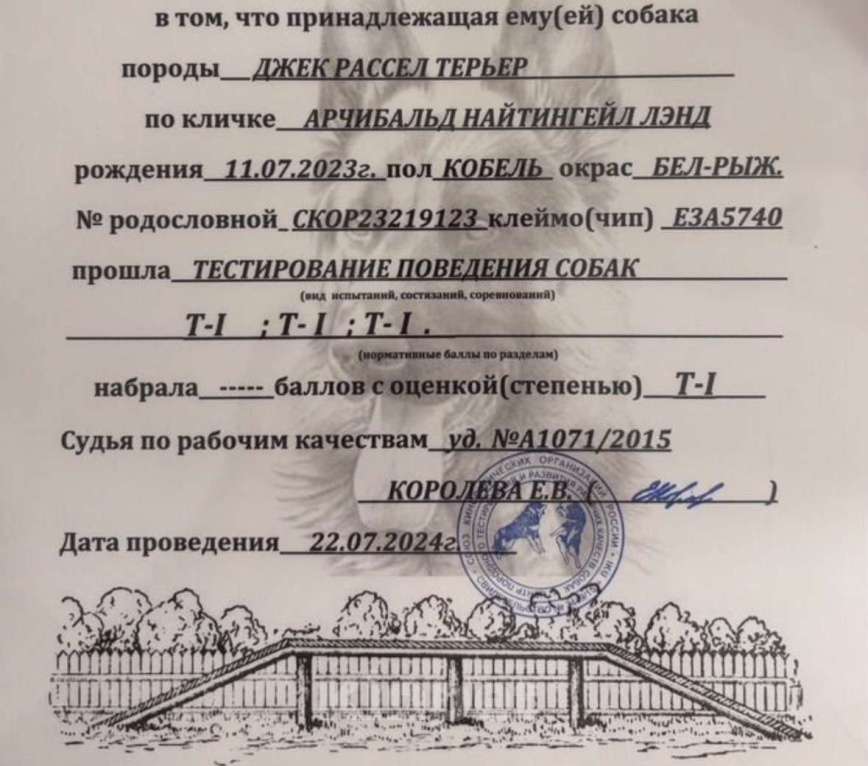 в том, что принадлежащая ему(ей) собака
породы ДЖЕК РАССЕЛ ТЕРЬЕР
по кличке АРЧИБАЛЬД НАЙТИНГЕЙЛ ЛЭНД
рождения 11.07.2023г. пол КОБЕЛЬ окрас БЕЛ-РЫЖ.
№ родословной СКОР23219123 клеймо(чип) ЕЗА5740
прошла ТЕСТИРОВАНИЕ ПОВЕДЕНИЯ СОБАК
(вид испытаний, состязаний, соревнований)
Т-I ; Т- I ; Т- I .
(нормативные баллы по разделам)
набрала ----- баллов с оценкой(степенью) Т-I
Судья по рабочим качествам уд. №А1071/2015
КОРОЛЕВА Е.В. ( )
Дата проведения 22.07.2024г.
СОЮЗ КИНОЛОГИЧЕСКИХ ОРГАНИЗАЦИЙ РОССИИ